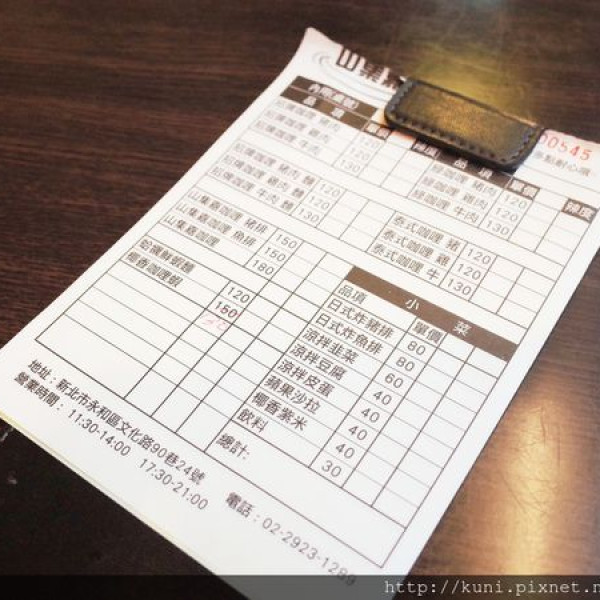 00545
內用(桌號)
品項 單價 辣度 品項 單價 辣度
紅咖哩 豬肉 120 綠咖哩 豬肉 120
紅咖哩 雞肉 120 綠咖哩 雞肉 120
紅咖哩 牛肉 130 綠咖哩 牛肉 130
紅咖哩 豬肉 麵 120 泰式咖哩 豬 120
紅咖哩 雞肉 麵 120 泰式咖哩 雞 120
紅咖哩 牛肉 麵 130 泰式咖哩 牛 130
山葉嘉咖哩 豬排 150
山葉嘉咖哩 魚排 150
山葉嘉咖哩 180
蛤蠣鮮蝦麵 120
椰香咖哩蝦 180
小菜
品項 單價
日式炸豬排 80
日式炸魚排 80
涼拌韭菜 60
涼拌豆腐 40
涼拌皮蛋 40
蘋果沙拉 40
椰香紫米 40
飲料 30
總計:
地址:新北市永和區文化路90巷24號
營業時間:11:30-14:00 17:30-21:00 電話:02-2923-1289
http://kuni.pixnet.n